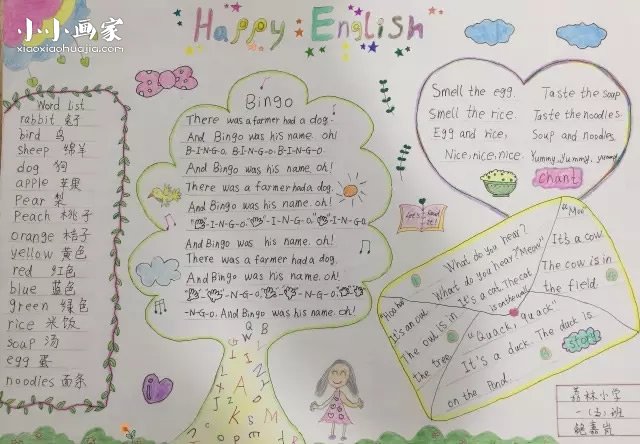 小小画家
xiaoxiaohuajia.com
Happy English
Word List
rabbit 兔子
bird 鸟
sheep 绵羊
dog 狗
apple 苹果
Pear 梨
Peach 桃子
orange 桔子
yellow 黄色
red 红色
blue 蓝色
green 绿色
rice 米饭
soup 汤
egg 蛋
noodles 面条
Bingo
There was a farmer had a dog.
And Bingo was his name. oh!
B-I-N-G-O. B-I-N-G-O. B-I-N-G-O.
And Bingo was his name. oh!
There was a farmer had a dog.
And Bingo was his name. oh!
-I-N-G-O. -I-N-G-O. -I-N-G-O.
And Bingo was his name. oh!
There was a farmer had a dog.
And Bingo was his name. oh!
-N-G-O. -N-G-O.
-N-G-O. And Bingo was his name. oh!
Let's read it!
Smell the egg.
Smell the rice.
Egg and rice,
Nice, nice, nice.
Taste the soup
Taste the noodles.
Soup and noodles
Yummy, yummy, yummy
chant
What do you hear?
What do you hear?
"Meow"
It's a cat. The cat
is on the wall.
"Moo"
It's a cow.
The cow is in
the field.
"Hoo hoo"
It's an owl.
The owl is in
the tree.
"Quack, quack"
It's a duck. The duck is
on the pond.
story
荔林小学
鲍嘉岚